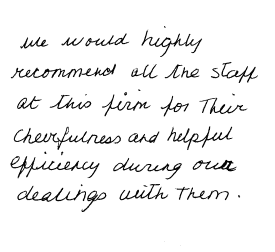 We would highly
recommend all the staff
at this firm for Their
cheerfulness and helpful
efficiency during our
dealings with Them.